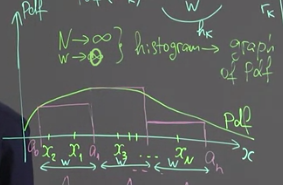 Pdf
W
h_K
r_K
N → ∞
w → 0
} histogram → graph
of Pdf
Pdf
a_0 x_2 x_1 a_1 x_3 ... x_N a_n x
w w w